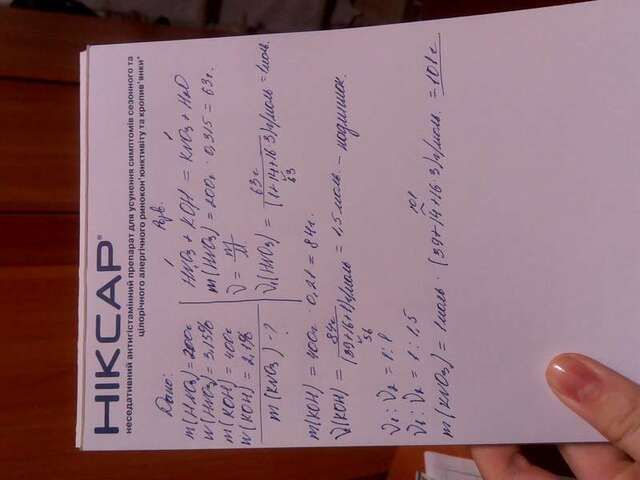 НІКСАР®
неседативний антигістамінний препарат для усунення симптомів сезонного та
цілорічного алергічного ринокон'юнктивіту та кропив'янки"
Дано:
m(HNO3)=200г
w(HNO3)=3,15%
m(KOH)=400г
w(KOH)=2,1%
m(KNO3)-?
Розв.
1 1
HNO3 + KOH = KNO3 + H2O
m(HNO3) = 200г · 0,315 = 63г.
ν = m/M
ν1(HNO3) = 63г/(1+14+16·3)г/моль = 1моль.
63
m(KOH) = 400г · 0,21 = 84г.
ν2(KOH) = 84г/(39+16+1)г/моль = 1,5 моль. – надлишок.
56
ν1 : ν2 = 1 : 1
ν1 : ν2 = 1 : 1,5
101
m(KNO3) = 1моль · (39+14+16·3)г/моль. = 101г